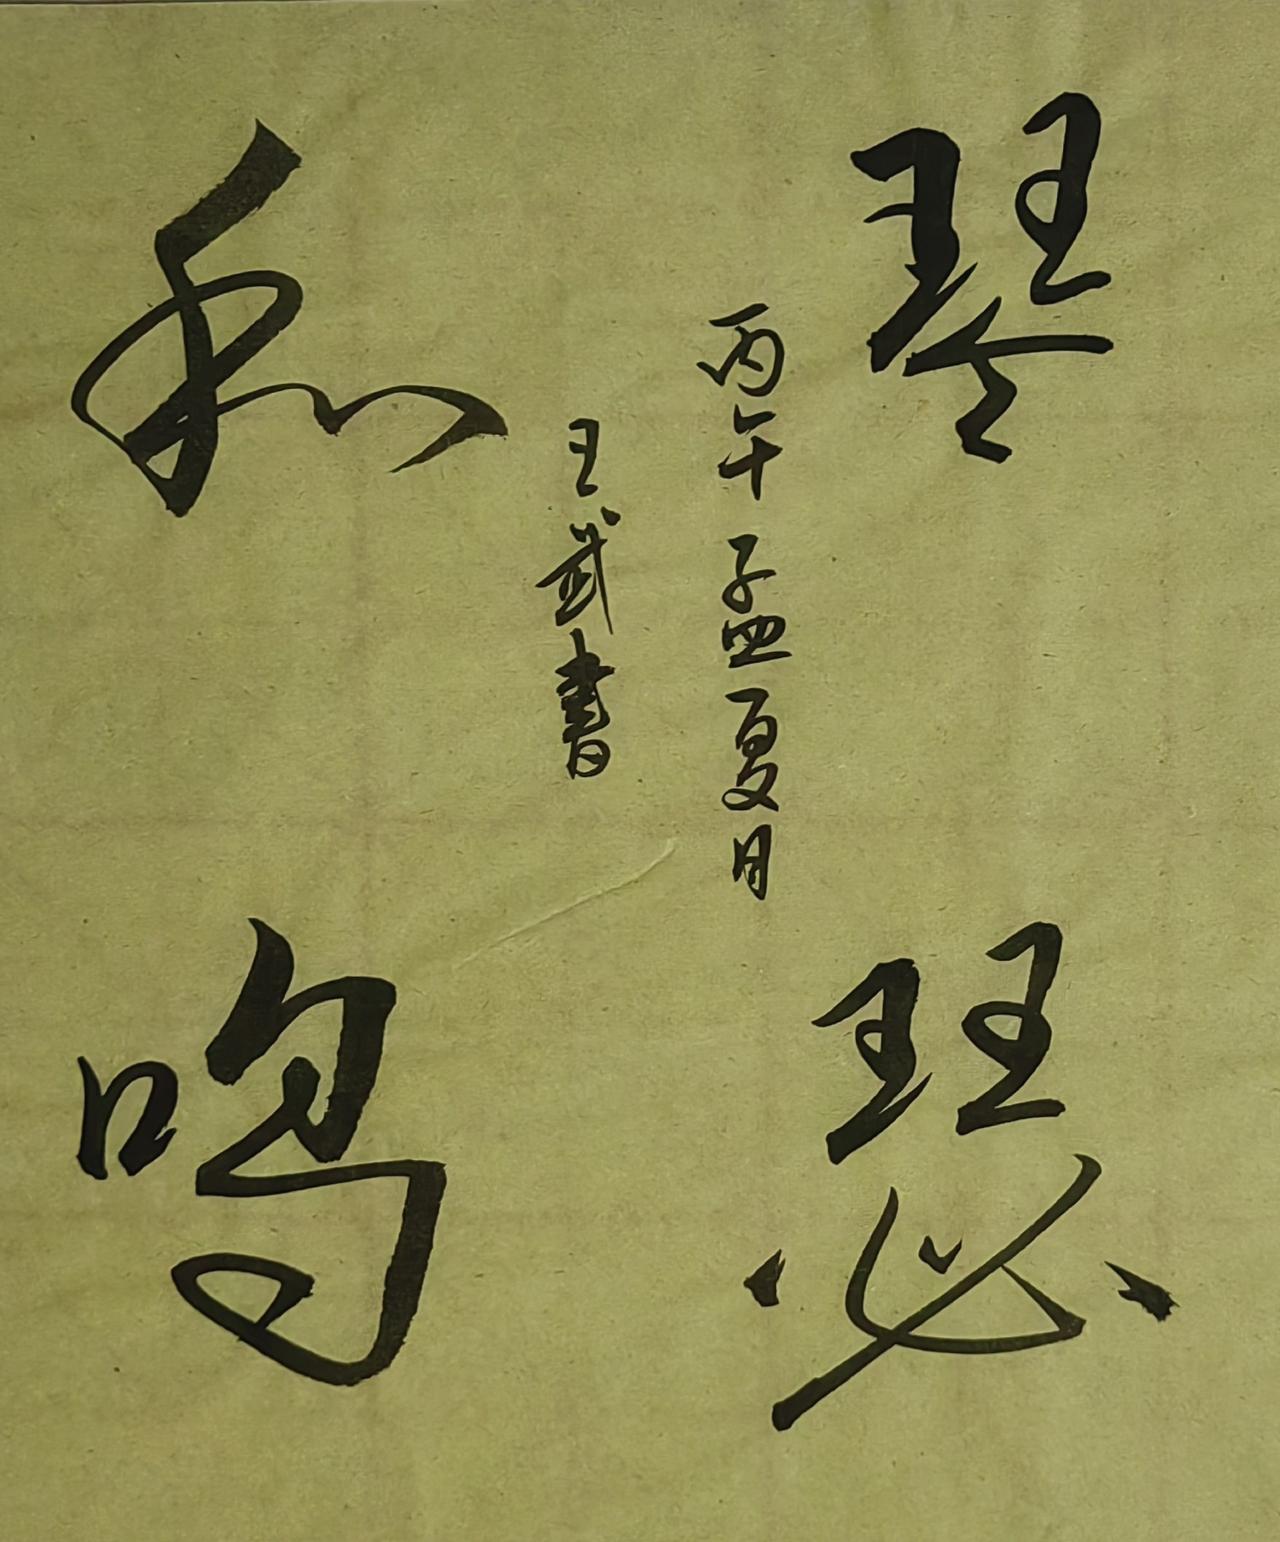 琴瑟
丙午孟夏月
王武書
和鸣